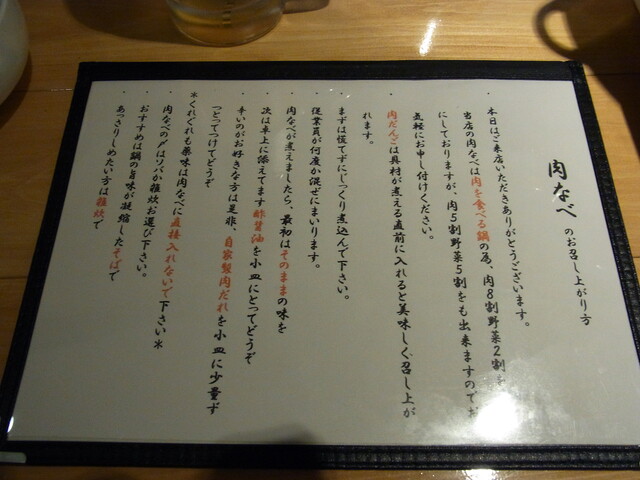 肉なべ のお召し上がり方
・本日はご来店いただきありがとうございます。
当店の肉なべは肉を食べる鍋の為、肉8割野菜2割
にしておりますが、肉5割野菜5割をも出来ますので
気軽にお申し付けください。
・肉だんごは具材が煮える直前に入れると美味しく召し上が
れます。
・まずは慌てずにじっくり煮込んで下さい。
従業員が何度か混ぜにまいります。
・肉なべが煮えましたら、最初はそのままの味を
・次は卓上に添えてます酢醤油を小皿にとってどうぞ
・辛いのがお好きな方は是非、自家製肉だれを小皿に少量ず
つとってつけてどうぞ
＊くれぐれも薬味は肉なべに直接入れないで下さい＊
・肉なべの〆はソバか雑炊お選び下さい。
・おすすめは鍋の旨味が凝縮したそばで
・あっさりしめたい方は雑炊で